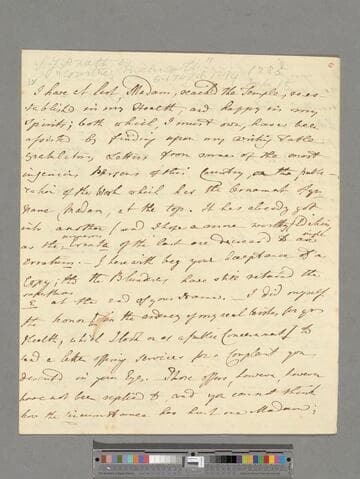 I have at last, Madam, reached the Temple, ree=
stablished in my Health, and happy in my
Spirits; both which, I must own, have been
assisted by finding upon my writing Table
Letters from some of the most
ingenious Persons of this Country, on the publi=
cation of the Work which has the Ornament of yr
Name Madam, at the top. It has already got
into another (and I hope a more worthy) Edition,
as the numerous Errata of the last are decreased to an
erratum. — I here with beg your Acceptance of a
Copy; tho the Blunderers have still retained the
superfluous
E at the end of your Name. — I did myself
the honor in the midst of my real Concern for your
Health, which I look on as a public Concernment to
send a letter offering Services for a Complaint you
described in your Eye. Those offers, however
have not been replied to and you cannot think
how the Circumstance has hurt me Madam;